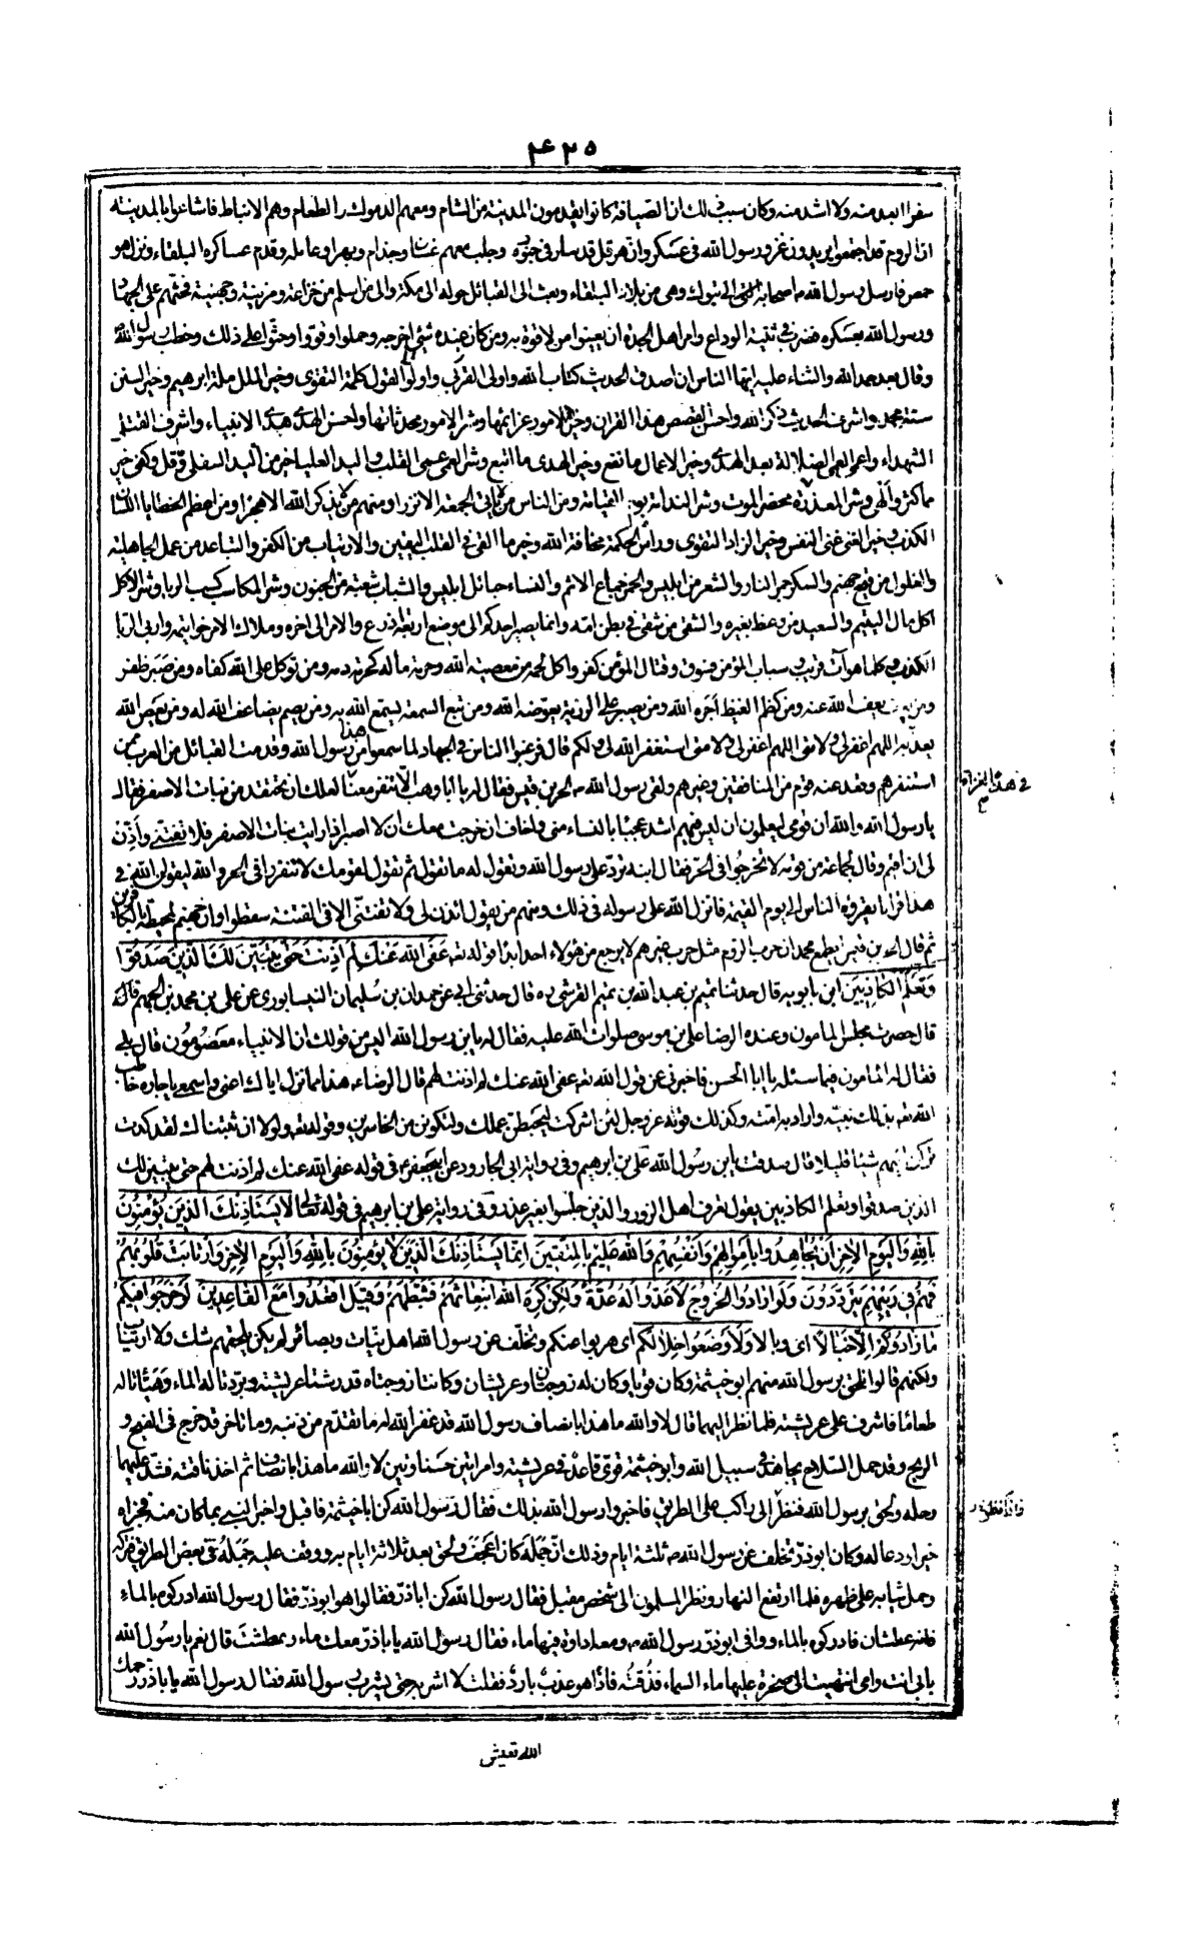 ۴۲۵
سفرا ابعد منه ولا اشد منه وكان سبب ذلك ان الصيافة كانوا يقدمون المدينة من الشام ومعهم الدرموك والطعام وهم الانباط فاشاعوا بالمدينة
ان الروم قد اجتمعوا يريدون غزو رسول الله في عسكر وان هرقل قد سار في جنوده وجلب معهم غسان وجذام وبهراء وعامله وقدم عساكره البلقاء ونزل هو
حمص فارسل رسول الله ص اصحابه الى تبوك وهى من بلاد البلقاء وبعث الى القبائل حوله الى مكة والى من اسلم من خزاعة ومزينة وجهينة فحثهم على الجهاد
ورسول الله بعسكره فضرب في ثنية الوداع وامر اهل الجدة ان يعينوا من لا قوة به ومن كان عنده شئ اخرجه وحملوا وقووا وحثوا على ذلك وخطب رسول الله
وقال بعد حمد الله والثناء عليه ايها الناس ان اصدق الحديث كتاب الله واولى القول كلمة التقوى وخير الملل ملة ابرهيم وخير السنن
سنة محمد واشرف الحديث ذكر الله واحسن القصص هذا القران وخير الامور عزائمها وشر الامور محدثاتها واحسن الهدى هدى الانبياء واشرف القتلى
الشهداء واعمى العمى الضلالة بعد الهدى وخير الاعمال ما نفع وخير الهدى ما اتبع وشر العمى عمى القلب واليد العليا خير من اليد السفلى وما قل وكفى خير
مما كثر والهى وشر المعذرة محضر الموت وشر الندامة يوم القيامة ومن الناس من لا ياتى الجمعة الا نزرا ومنهم من لا يذكر الله الا هجرا ومن اعظم الخطايا اللسان
الكذب وخير الغنى غنى النفس وخير الزاد التقوى ورأس الحكمة مخافة الله وخير ما القى في القلب اليقين والارتياب من الكفر والتباعد من عمل الجاهلية
والغلول من قيح جهنم والسكر جمر النار والشعر من ابليس والخمر جماع الاثم والنساء حبائل ابليس والشباب شعبة من الجنون وشر المكاسب كسب الربا وشر الاكل
اكل مال اليتيم والسعيد من وعظ بغيره والشقى من شقى في بطن امه وانما يصير احدكم الى موضع اربعة اذرع والامر الى اخره وملاك الامر خواتيمه واربى الربا
الكذب وكلما هو آت قريب وسباب المؤمن فسوق وقتال المؤمن كفر واكل لحمه من معصية الله وحرمة ماله كحرمة دمه ومن توكل على الله كفاه ومن صبر ظفر
ومن يعف يعف الله عنه ومن كظم الغيظ آجره الله ومن يصبر على الرزية يعوضه الله ومن تبع السمعة يسمع الله به ومن يصم يضاعف الله له ومن يعص الله
يعذبه اللهم اغفر لى ولامتى اللهم اغفر لى ولامتى استغفر الله لى ولكم قال فرغبوا الناس في الجهاد لما سمعوا هذا من رسول الله وقدمت القبائل من العرب ممن
استنفرهم وقعد عنه قوم من المنافقين وغيرهم ولقى رسول الله ص الحر بن قيس فقال له يا ابا وهب الا تنفر معنا لعلك ان تحتفد من بنات الاصفر فقال
يا رسول الله والله ان قومى ليعلمون ان ليس فيهم اشد عجبا بالنساء منى واخاف ان خرجت معك ان لا اصبر اذا رايت بنات الاصفر فلا تفتنى واذن
لى ان اقيم وقال لجماعة من قومه لا تخرجوا في الحر فقال ابنه ترد على رسول الله وتقول له ما تقول ثم تقول لقومك لا تنفروا في الحر والله لينزلن الله في
هذا قرانا يقرؤه الناس الى يوم القيمة فانزل الله على رسوله في ذلك ومنهم من يقول ائذن لى ولا تفتنى الا في الفتنة سقطوا وان جهنم لمحيطة بالكافرين
ثم قال الحر بن قيس ايطمع محمد ان حرب الروم مثل حرب غيرهم لا يرجع من هؤلاء احد ابدا قوله تعه عفى الله عنك لم اذنت لهم حتى يتبين لك الذين صدقوا
وتعلم الكاذبين ابن بابويه قال حدثنا تميم بن عبد الله بن تميم القرشى ره قال حدثنى ابى عن حمدان بن سليمان النيسابورى عن على بن محمد بن الجهم قال
قال حضرت مجلس المامون وعنده الرضا على بن موسى صلوات الله عليه فقال له يا بن رسول الله اليس من قولك ان الانبياء معصومون قال بلى
فقال له المامون فيما سئله يا ابا الحسن فاخبرنى عن قول الله تعه عفى الله عنك لم اذنت لهم قال الرضا ع هذا مما نزل اياك اعنى واسمعى يا جاره خاطب
الله تعه بذلك نبيه واراد به امته وكذلك قوله عز وجل لئن اشركت ليحبطن عملك ولتكونن من الخاسرين وقوله تعه ولولا ان ثبتناك لقد كدت
تركن اليهم شيئا قليلا قال صدقت يا بن رسول الله على بن ابرهيم وفي رواية ابى الجارود عن ابيجعفر ع في قوله عفى الله عنك لم اذنت لهم حتى يتبين لك
الذين صدقوا وتعلم الكاذبين يقول تعرف اهل الزور والذين جلسوا بغير عذر وفى رواية على بن ابرهيم في قوله تعالى لا يستاذنك الذين يؤمنون
بالله واليوم الاخر ان يجاهدوا باموالهم وانفسهم والله عليم بالمتقين انما يستاذنك الذين لا يؤمنون بالله واليوم الاخر وارتابت قلوبهم
فهم في ريبهم يترددون ولو ارادوا الخروج لاعدوا له عدة ولكن كره الله انبعاثهم فثبطهم وقيل اقعدوا مع القاعدين لو خرجوا فيكم
ما زادوكم الا خبالا اى وبالا ولاوضعوا خلالكم اى هربوا عنكم وتخلف عن رسول الله اهل نيات وبصائر لم يكن يلحقهم شك ولا ارتياب
ولكنهم قالوا نلحق برسول الله منهم ابو خيثمة وكان قويا وكان له زوجتان وعريشان وكانتا زوجتاه قد رشتا عريشته وبردتا له الماء وهيئتا له
طعاما فاشرف على عريشته فلما نظر اليهما قال لا والله ما هذا بانصاف رسول الله قد غفر الله له ما تقدم من ذنبه وما تاخر قد خرج في الضح و
الريح وقد حمل السلاح يجاهد في سبيل الله وابو خيثمة قوى قاعد في عريشته وامراتين حسناوتين لا والله ما هذا بانصاف ثم اخذ ناقته فشد عليها
رحله ولحق برسول الله فنظر الى راكب على الطريق فاخبروا رسول الله بذلك فقال رسول الله كن ابا خيثمة فاقبل واخبر النبى بما كان منه فجزاه
خيرا ودعا له وكان ابوذر تخلف عن رسول الله ص ثلثة ايام وذلك ان جمله كان اعجف ولحق بعد ثلاثة ايام به ووقف عليه جمله في بعض الطريق فتركه
وحمل ثيابه على ظهره فلما ارتفع النهار ونظر المسلمون الى شخص مقبل فقال رسول الله كن اباذر فقالوا هو ابوذر فقال رسول الله ادركوه بالماء
فانه عطشان فادركوه بالماء ووافى ابوذر رسول الله ص ومعه اداوة فيها ماء فقال رسول الله يا باذر معك ماء وعطشت قال نعم يا رسول الله
بابى انت وامى انتهيت الى صخرة عليها ماء السماء فذقته فاذا هو عذب بارد فقلت لا اشربه حتى يشرب رسول الله فقال رسول الله يا باذر رحمك
الله تعيش